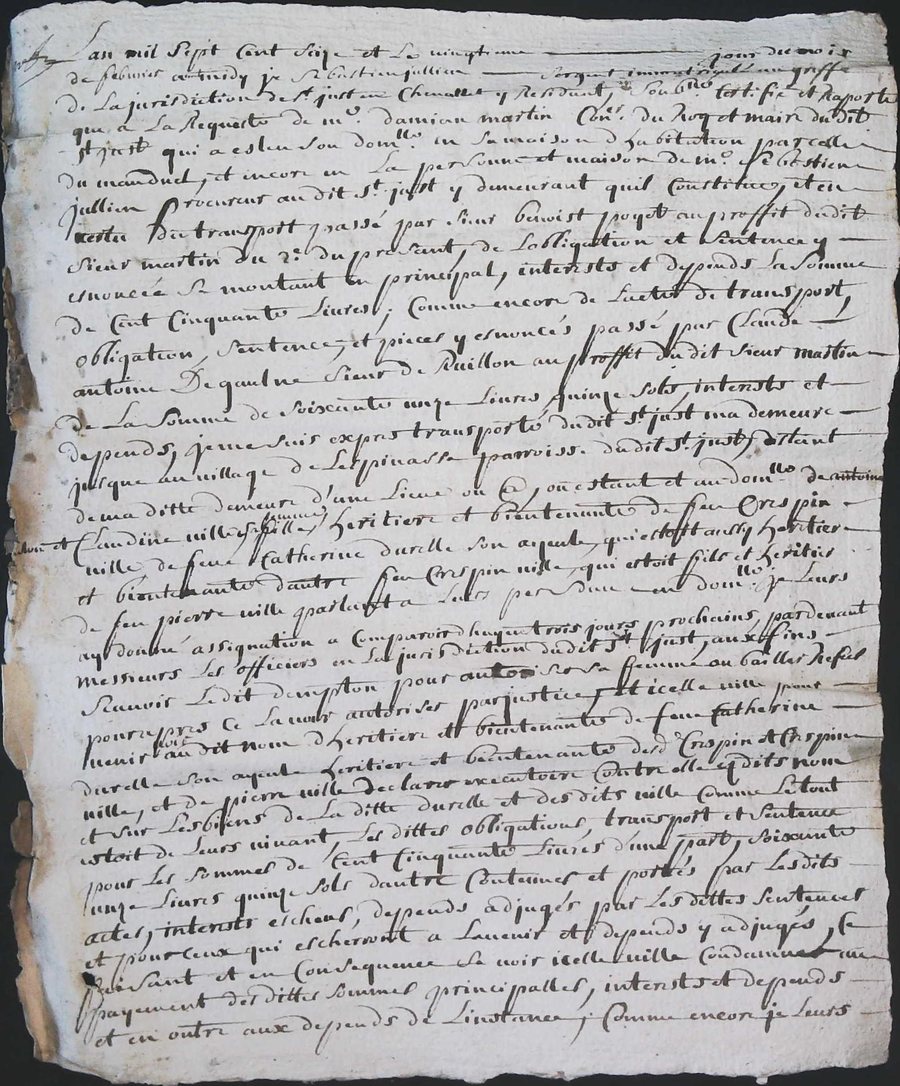 Lan mil sept cent seize et le vingtieme jour du mois
de febvrier apmidy je Sebastien jullien sergent immatriculé au greffe
de la jurisdiction de st just en Chevallet y Residant, soubne certifie et Raporte
que a La Requeste de mr damian martin Coner du Roy et maire dudit
st just qui a esleu son domlle en sa maison d'habitation parcelle
du mandnel, et encore en La personne et maison de me sebastien
jullien procureur audit st just y demeurant quil Constitue, et en
vertu du transport passé par sieur benoist poyet au proffit dudit
sieur martin du 2e du presant, de Lobligation et sentence y
esnoncée se montant en principal, interests et depends La somme
de Cent Cinquante Livres, Comme encore de Lacte de transport,
obligation, sentence, et pieces y esnoncés passé par Claude
antoine De gaulne sieur de Ruillon au proffit dudit sieur martin
de La somme de soixante unze Livres quinze sols, interests et
depends, je me suis expres transporté dudit st just ma demeure
jusque au village de Lespinasse parroisse dudit st just, distant
de ma ditte demeure d'une Lieue ou Ce, ou estant et au domlle de antoine
et Claudine ville sa femme fille, heritiere et bientenante de feu Crespin
ville de feue Catherine durelle son ayeule, qui estoit aussy heritiere
et bientenante dautre feu Crespin ville, qui estoit fils et heritier
de feu pierre ville parlant a Leurs personne en domlle je Leurs
ay donné assignation a Comparoir d'huy en trois jours prochains pardevant
messieurs Les officiers en La jurisdiction dudit st just, aux fins
scavoir Ledit dempton pour autoriser sa femme ou bailler Refus
pour apres Ce La voir autoriser par justice, et icelle ville pour
venir voir audit nom d'heritiere et bientenante de feue Catherine
durelle son ayeule heritiere et bientenante desd Crespin et Crespin
ville, et de pierre ville declarer executoire Contre elle esdits nom
et sur Les biens de La ditte durelle et desdits ville Comme Le tout
estoit de Leurs vivant, Les dittes obligations, transport et sentence
pour Les sommes de Cent Cinquante Livres d'une part, soixante
unze Livres quinze sols dautre Contenues et portés par Lesdits
actes, interests escheus, depends adjugés par Lesdittes sentences
et pour Ceux qui escherront a Lavenir et depends y adjugés, Ce
faisant et en Consequence se voir icelle ville Condamner au
payement desdittes sommes principalles, interests et depends
et en outre aux depends de Linstance, Comme encore je Leurs